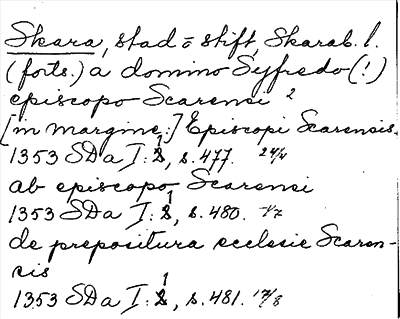 Skara, stad o stift, Skarab. l.
(forts.) a domino Syfredo (!)
episcopo Scarensi 2
[in margine:] Episcopi Scarensis.
1353 SDa I: 1, s. 477. 24/4
ab episcopo Scarensi
1353 SDa I: 1, s. 480. 1/7
de prepositura ecclesie Scaren-
sis
1353 SDa I: 1, s. 481. 17/8